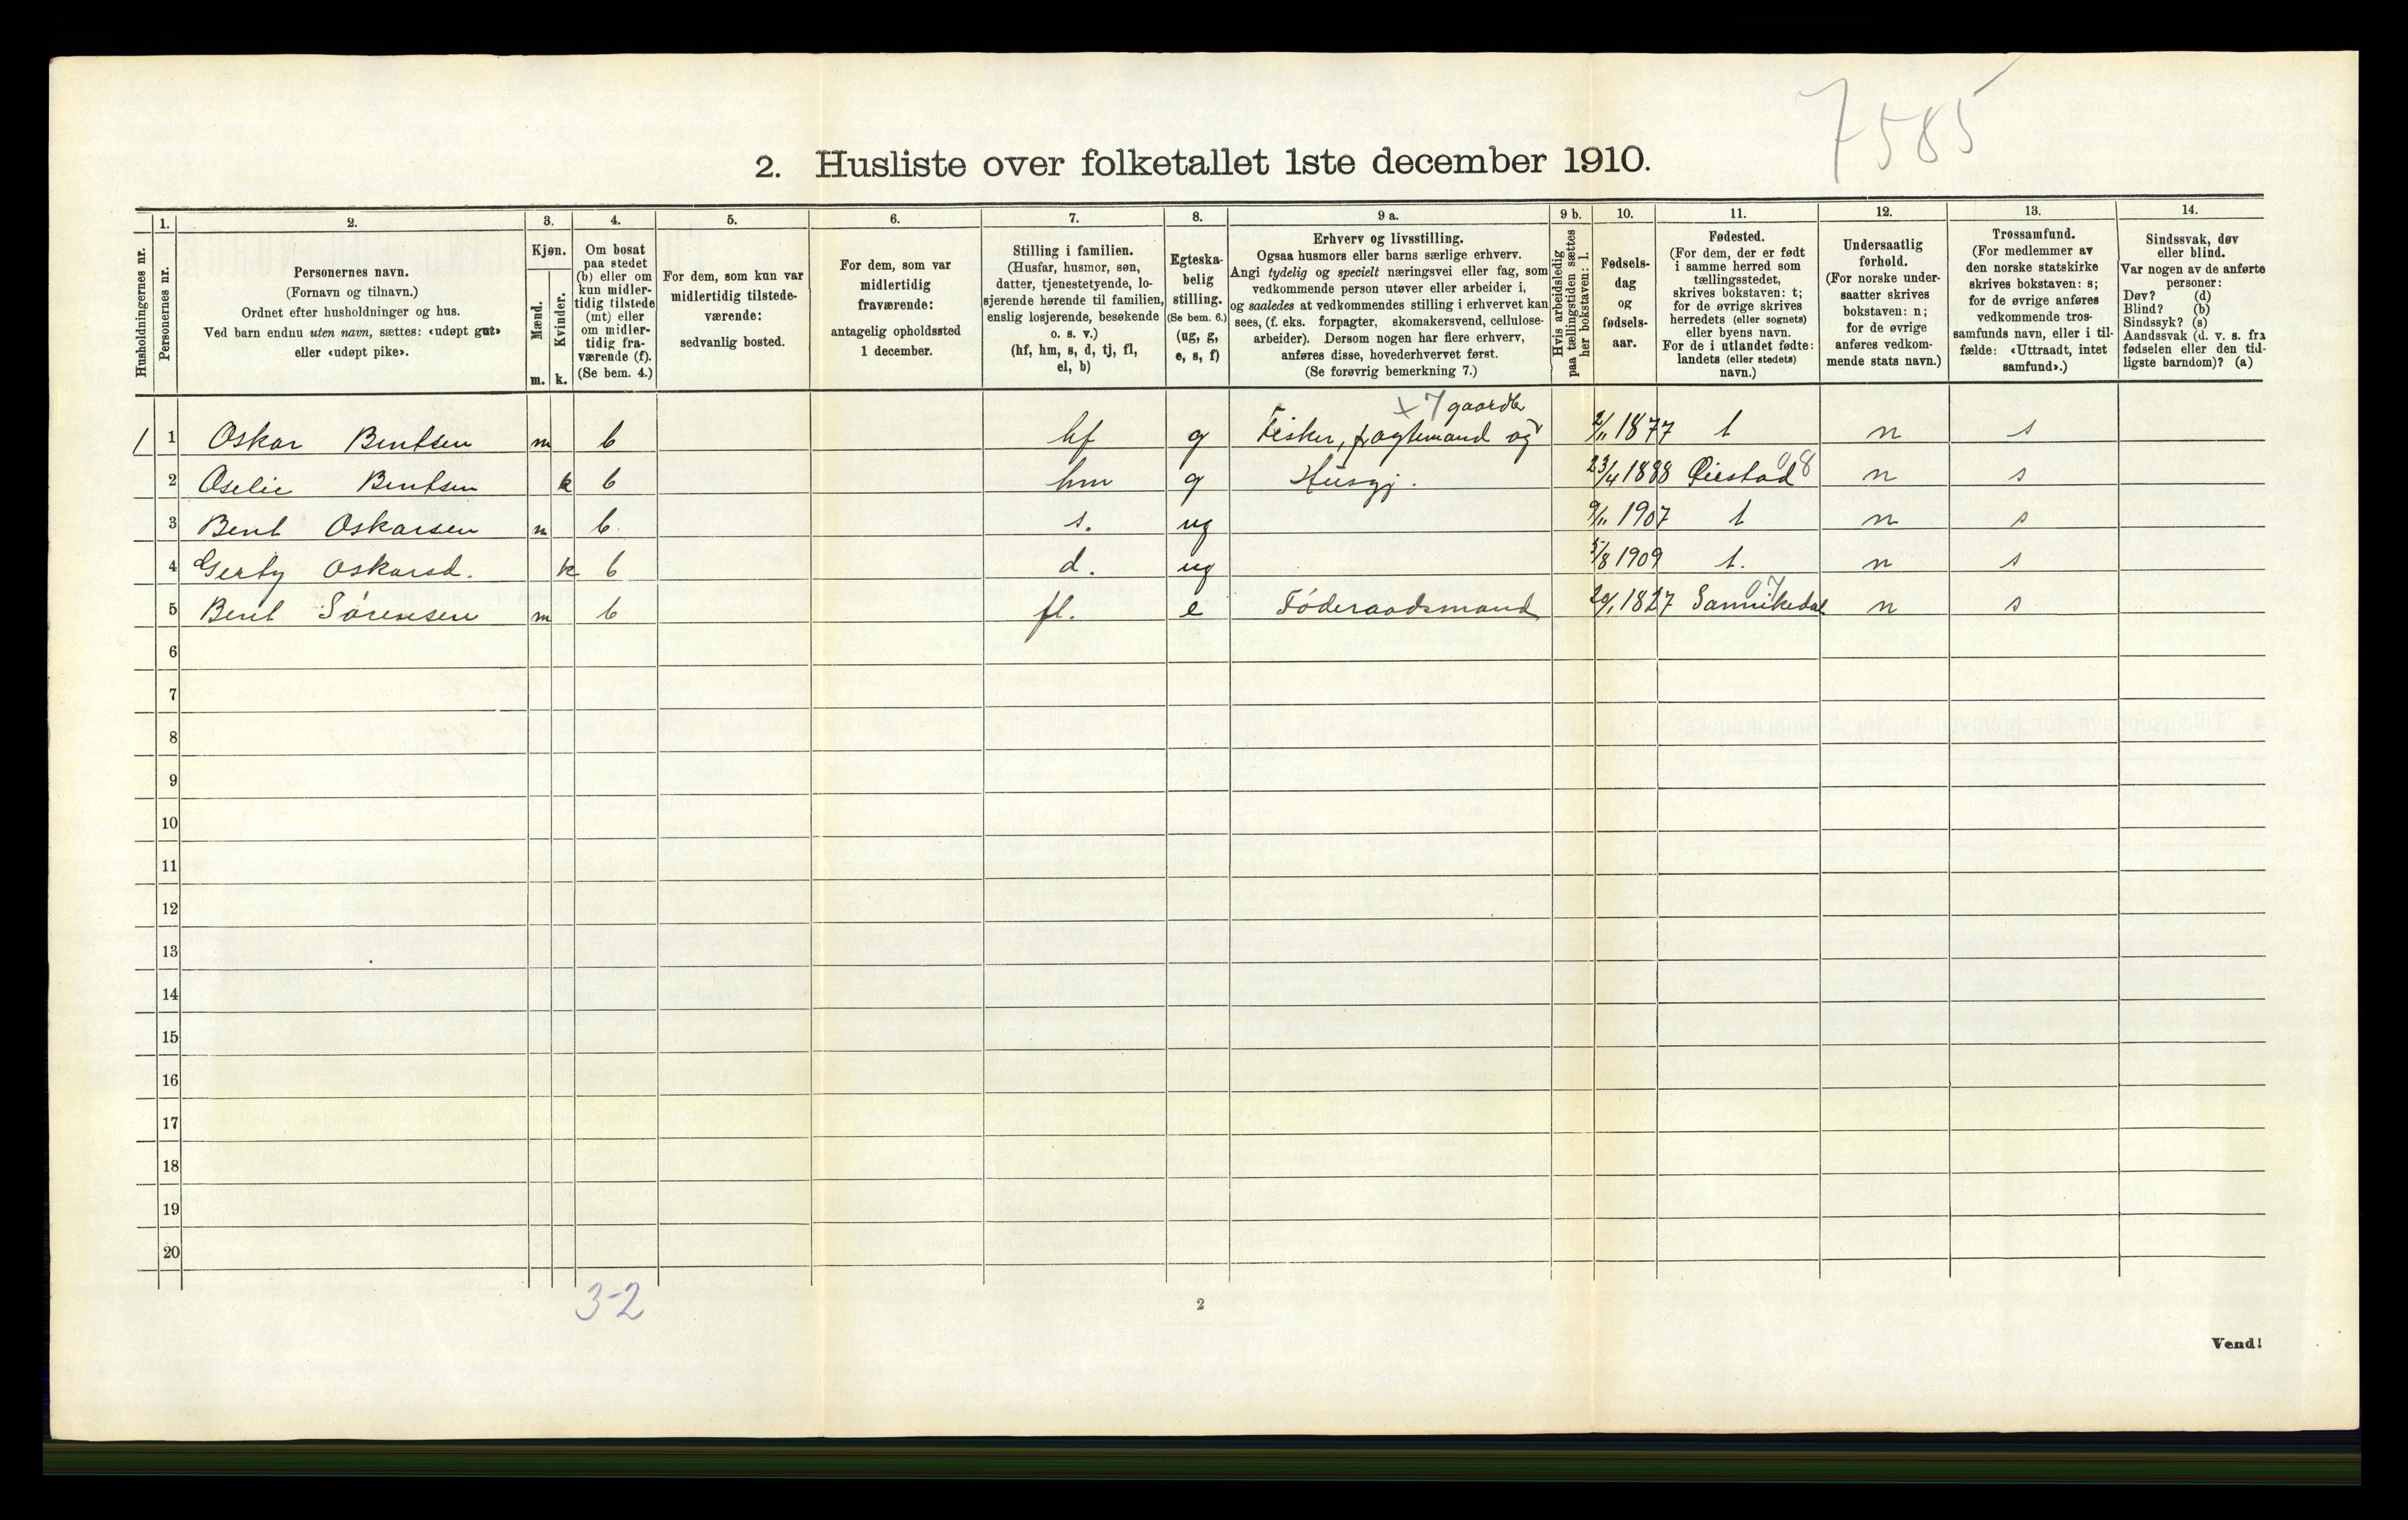 7585
2. Husliste over folketallet 1ste december 1910.
Husholdningernes nr.
1.
Personernes nr.
2.
Personernes navn.
(Fornavn og tilnavn.)
Ordnet efter husholdninger og hus.
Ved barn endnu uten navn, sættes: «udøpt gut»
eller «udøpt pike».
3.
Kjøn.
Mænd.
Kvinder.
m. k.
4.
Om bosat
paa stedet
(b) eller om
kun midler-
tidig tilstede
(mt) eller
om midler-
tidig fra-
værende (f).
(Se bem. 4.)
5.
For dem, som kun var
midlertidig tilstede-
værende:
sedvanlig bosted.
6.
For dem, som var
midlertidig
fraværende:
antagelig opholdssted
1 december.
7.
Stilling i familien.
(Husfar, husmor, søn,
datter, tjenestetyende, lo-
sjerende hørende til familien,
enslig losjerende, besøkende
o. s. v.)
(hf, hm, s, d, tj, fl,
el, b)
8.
Egteska-
belig
stilling.
(Se bem. 6.)
(ug, g,
e, s, f)
9 a.
Erhverv og livsstilling.
Ogsaa husmors eller barns særlige erhverv.
Angi tydelig og specielt næringsvei eller fag, som
vedkommende person utøver eller arbeider i,
og saaledes at vedkommendes stilling i erhvervet kan
sees, (f. eks. forpagter, skomakersvend, cellulose-
arbeider). Dersom nogen har flere erhverv,
anføres disse, hovederhvervet først.
(Se forøvrig bemerkning 7.)
9 b.
Hvis arbeidsledig
paa tællingstiden sættes
her bokstaven: l.
10.
Fødsels-
dag
og
fødsels-
aar.
11.
Fødested.
(For dem, der er født
i samme herred som
tællingsstedet,
skrives bokstaven: t;
for de øvrige skrives
herredets (eller sognets)
eller byens navn.
For de i utlandet fødte:
landets (eller stedets)
navn.)
12.
Undersaatlig
forhold.
(For norske under-
saatter skrives
bokstaven: n;
for de øvrige
anføres vedkom-
mende stats navn.)
13.
Trossamfund.
(For medlemmer av
den norske statskirke
skrives bokstaven: s;
for de øvrige anføres
vedkommende tros-
samfunds navn, eller i til-
fælde: «Uttraadt, intet
samfund».)
14.
Sindssvak, døv
eller blind.
Var nogen av de anførte
personer:
Døv? (d)
Blind? (b)
Sindssyk? (s)
Aandssvak (d. v. s. fra
fødselen eller den tid-
ligste barndom)? (a)
x 7 gaardbr
1 1 Oskar Bentsen m b hf g Fisker, fragtemand og 2/11 1877 t n s
08
2 Oselie Bentsen k b hm g Husgj. 23/4 1888 Øiestad n s
3 Bent Oskarsen m b. s. ug 9/11 1907 t n s
4 Gerty Oskarsd. k b d. ug 5/8 1909 t. n s
07
5 Bent Sørensen m b fl. e Föderaadsmand 20/1 1827 Sannikedal n s
6
7
8
9
10
11
12
13
14
15
16
17
18
19
20
3-2
2
Vend!